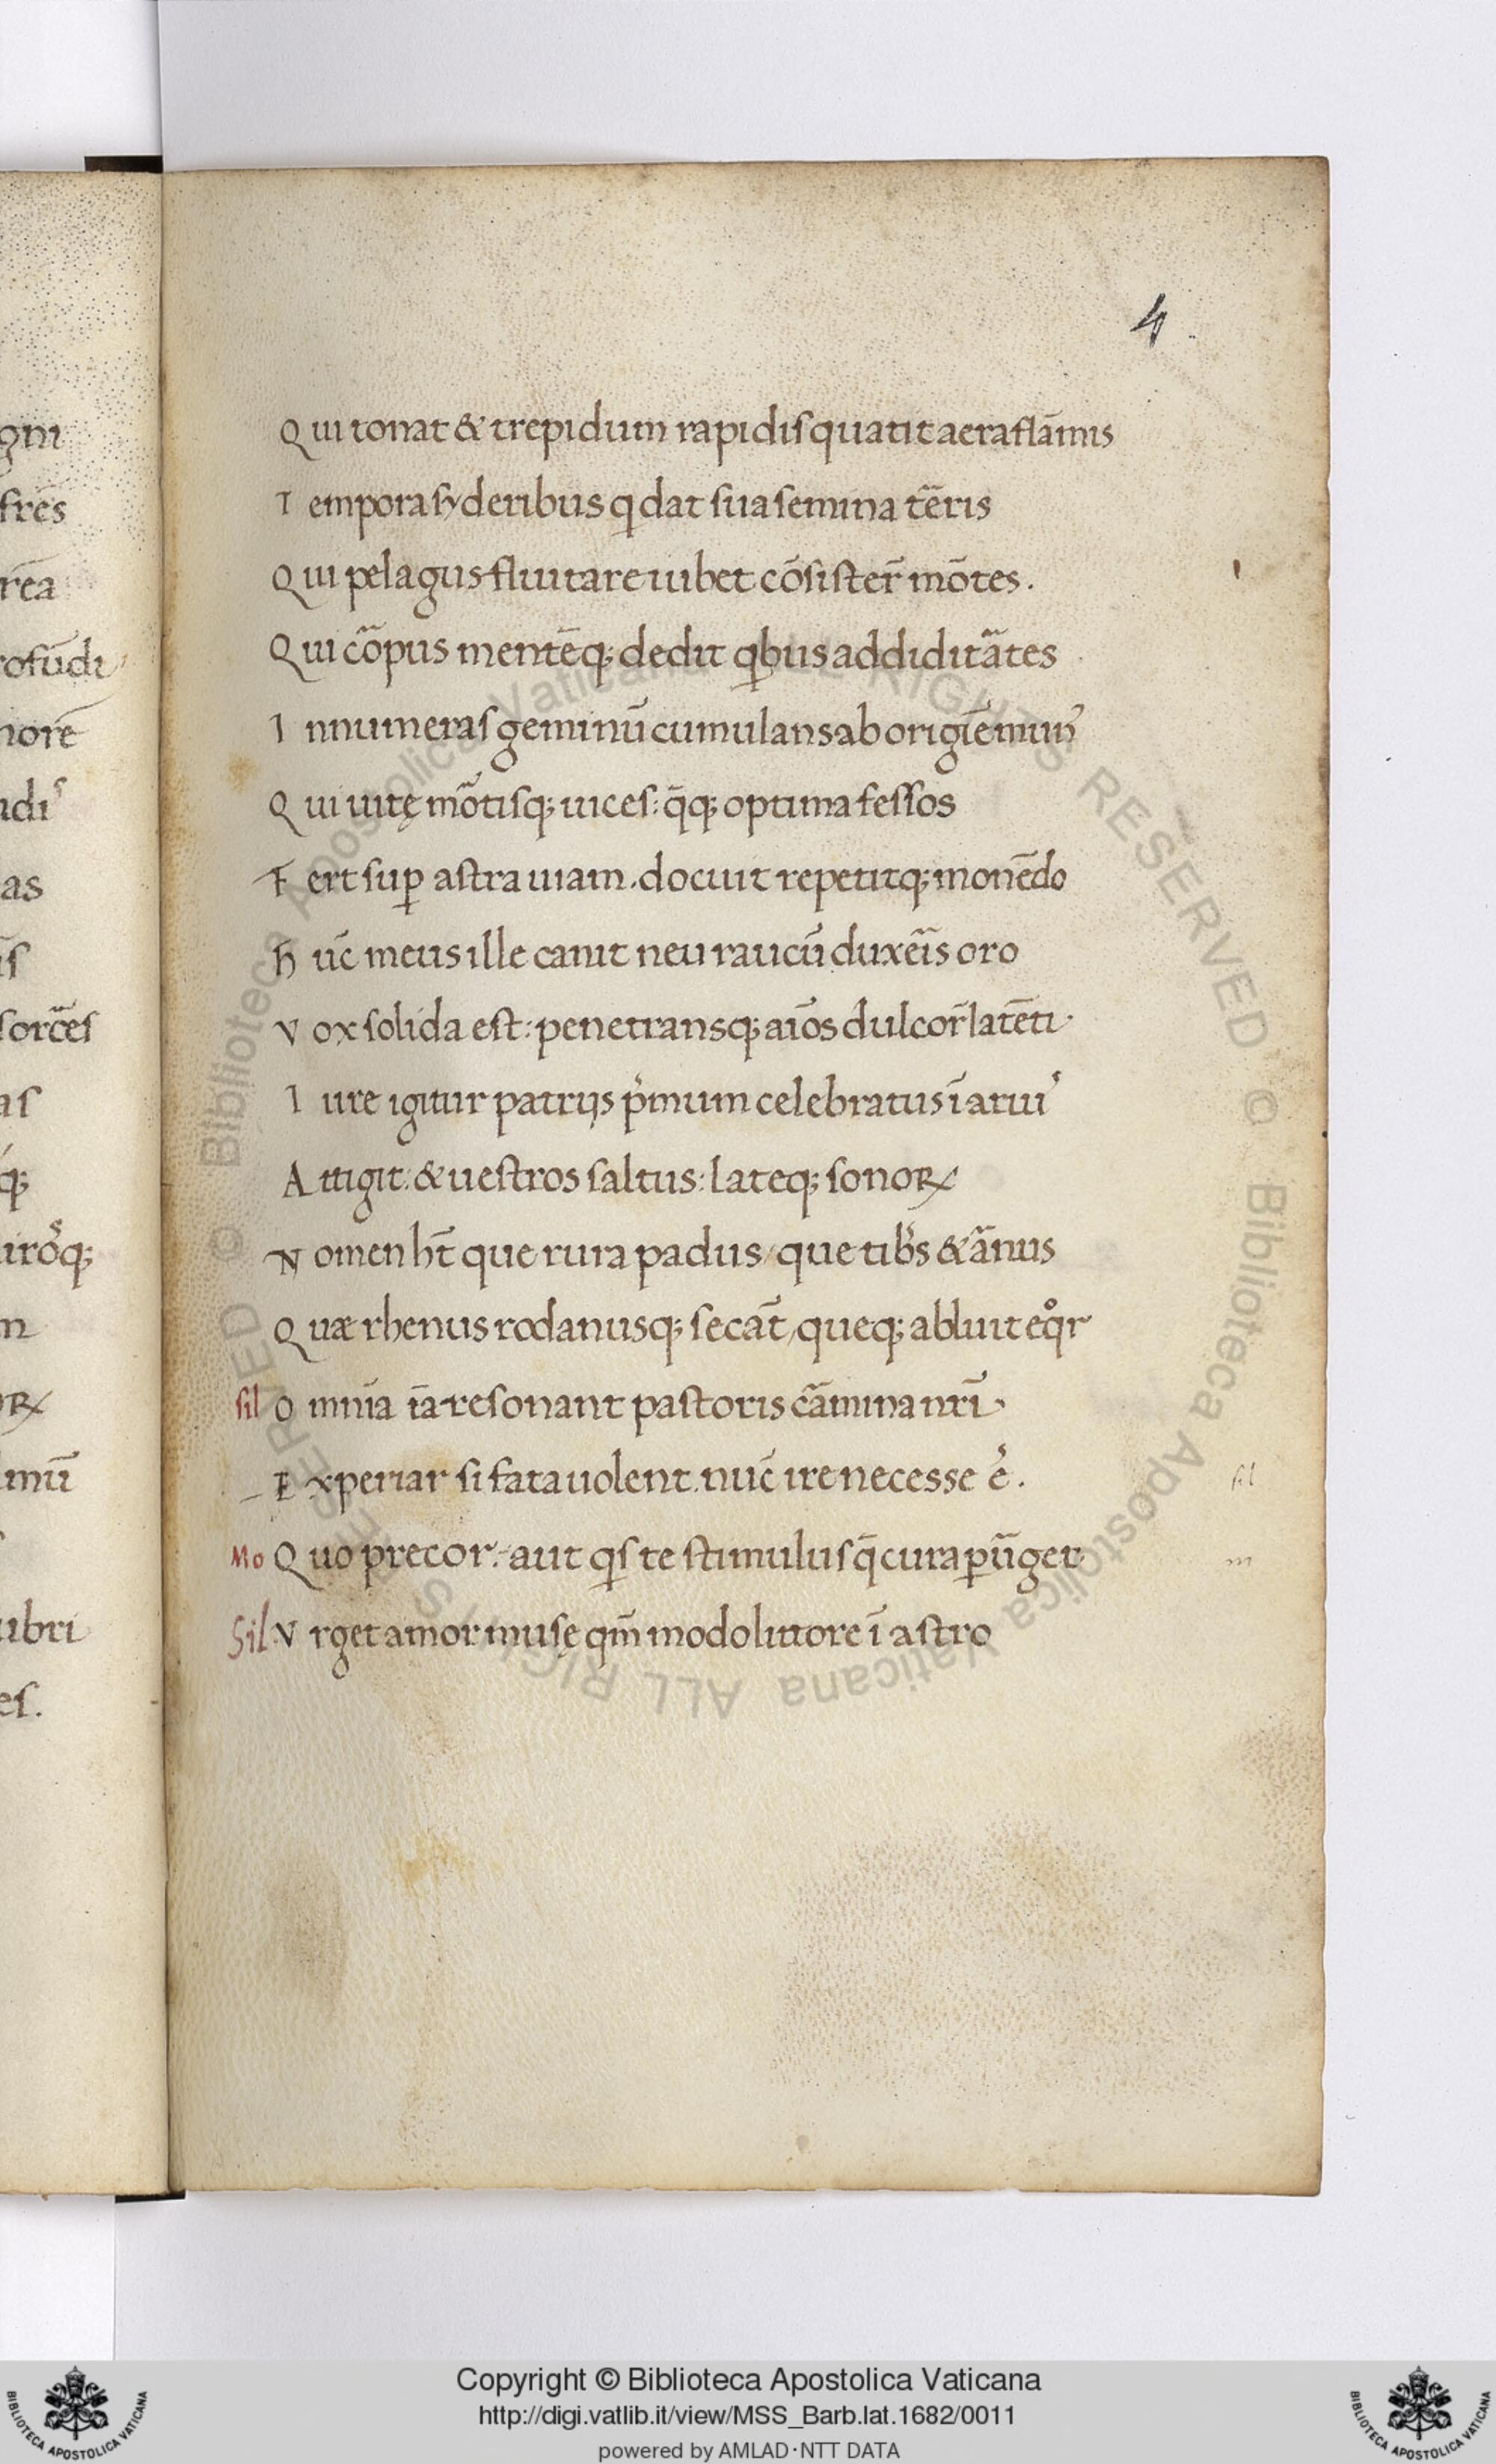 4
Qui tonat & trepidum rapidis quatit aera flāmis
Tempora syderibus q dat sua semina tēris
Qui pelagus fluitare iubet cōsister̄ mōtes.
Qui cōpus mentēq; dedit qbus addidit ātes
Innumeras geminū cumulans ab origīe mun⁹
Qui uitę mōtisq; uices: q̄q; optima fessos
Fert sup astra uiam. docuit repetitq; monēdo
hūc meus ille canit neu raucū duxēis oro
Vox solida est: penetransq; aīos dulcor̄ latēti.
Iure igitur patrijs pͥmum celebratus ī aruiˢ
Attigit: & uestros saltus: lateq; sonoꝝ
Nomen ht̄ que rura padus / que tibͥs & ānus
Quæ rhenus rodanusq; secāt / queq; abluit eqͦr
sil Omnia iā resonant pastoris cāmina nrī.
Experiar si fata uolent. nūc ire necesse ē.
sil
Mo Quo precor: aut qs te stimulus q̄ cura pūget
m
Sil Vrget amor musę qm̄ modo littore ī astro
gni
frēs
rea
rofūdi
norē
udiˢ
as
īs
sortēs
as
q;
irosq;
m
oꝝ
mū
ubri
es.
Copyright © Biblioteca Apostolica Vaticana
http://digi.vatlib.it/view/MSS_Barb.lat.1682/0011
powered by AMLAD·NTT DATA
BIBLIOTECA APOSTOLICA VATICANA
BIBLIOTECA APOSTOLICA VATICANA